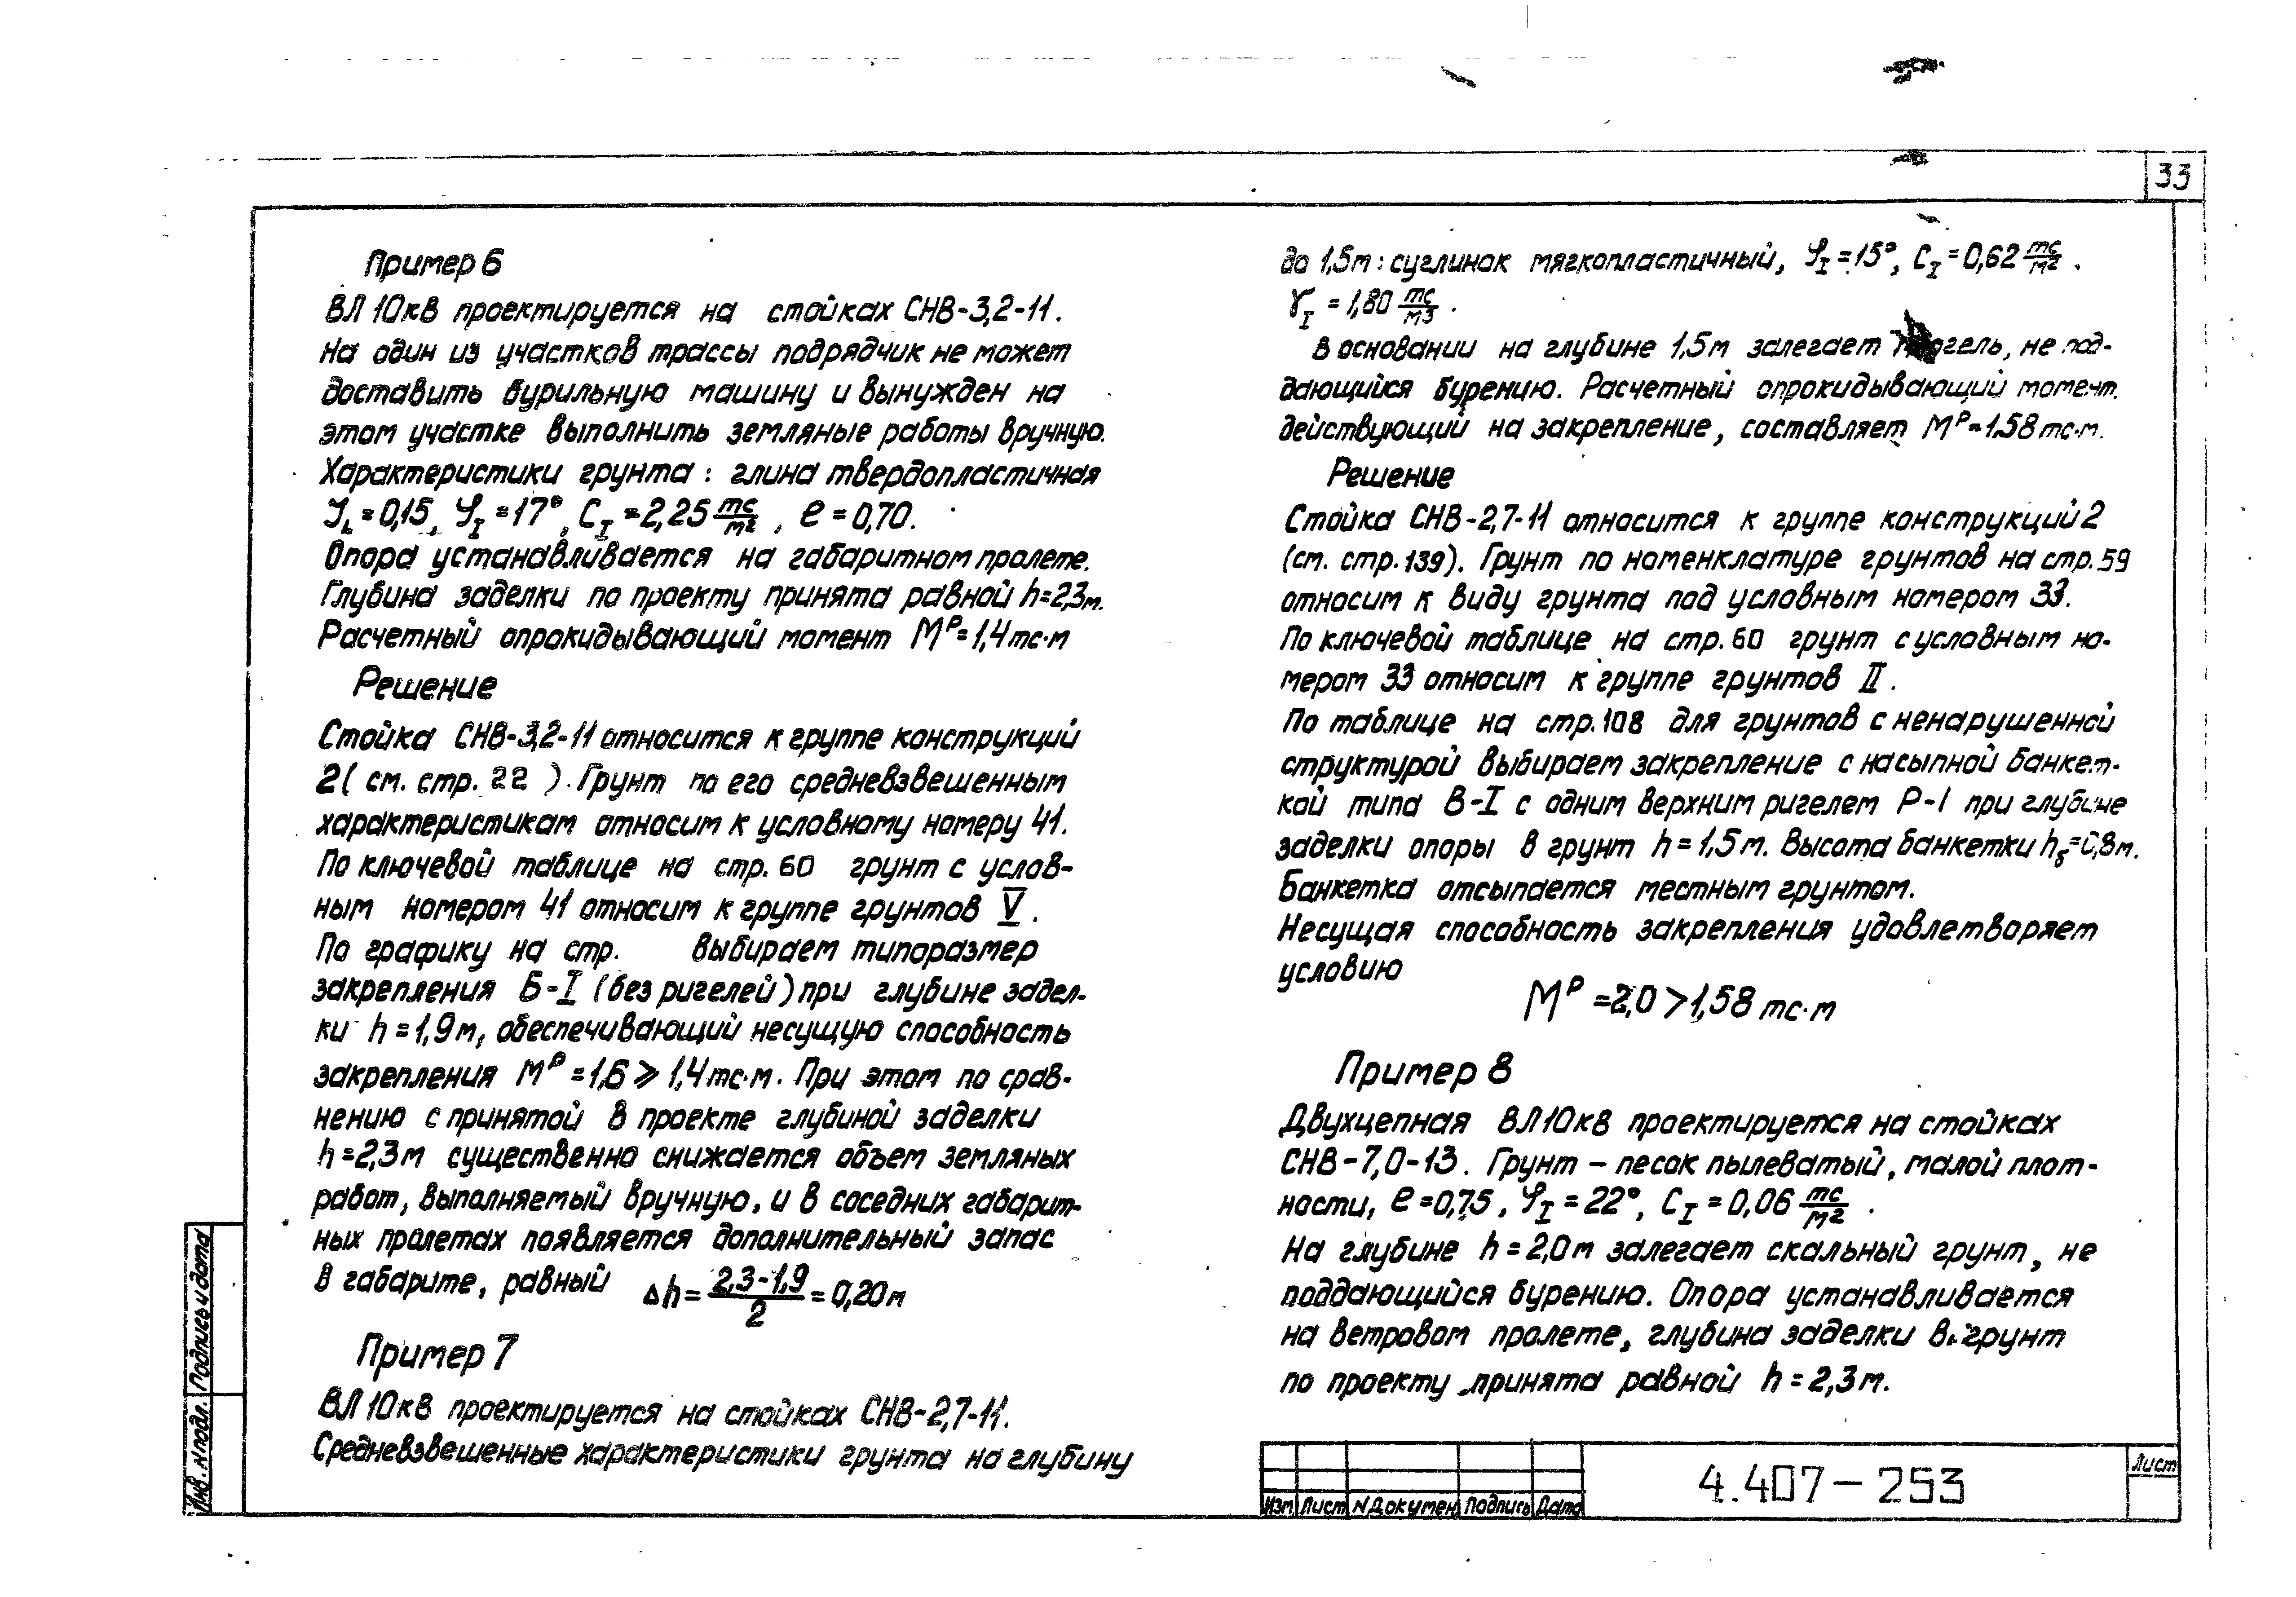 33
Пример 6
ВЛ 10кВ проектируется на стойках СНВ-3,2-11.
На один из участков трассы подрядчик не может
доставить бурильную машину и вынужден на
этом участке выполнить земляные работы вручную.
Характеристики грунта: глина твердопластичная
J_L=0,15, φ_I=17°, C_I=2,25 тс/м², e=0,70.
Опора устанавливается на габаритном пролете.
Глубина заделки по проекту принята равной h=2,3м.
Расчетный опрокидывающий момент Mᵖ=1,4тс·м
Решение
Стойка СНВ-3,2-11 относится к группе конструкций
2 (см. стр. 22). Грунт по его средневзвешенным
характеристикам относим к условному номеру 41.
По ключевой таблице на стр. 60 грунт с услов-
ным номером 41 относим к группе грунтов V.
По графику на стр. выбираем типоразмер
закрепления Б-I (без ригелей) при глубине задел-
ки h=1,9м, обеспечивающий несущую способность
закрепления Mᵖ=1,6 ⩾ 1,4тс·м. При этом по срав-
нению с принятой в проекте глубиной заделки
h=2,3м существенно снижается объем земляных
работ, выполняемый вручную, и в соседних габарит-
ных пролетах появляется дополнительный запас
в габарите, равный Δh = (2,3-1,9)/2 = 0,20м
Пример 7
ВЛ 10кВ проектируется на стойках СНВ-2,7-11.
Средневзвешенные характеристики грунта на глубину
до 1,5м: суглинок мягкопластичный, φ_I=15°, C_I=0,62 тс/м².
γ_I = 1,80 тс/м³.
В основании на глубине 1,5м залегает не под-
дающийся бурению. Расчетный опрокидывающий момент,
действующий на закрепление, составляет Mᵖ=1,58 тс·м.
Решение
Стойка СНВ-2,7-11 относится к группе конструкций 2
(см. стр. 139). Грунт по номенклатуре грунтов на стр. 59
относим к виду грунта под условным номером 33.
По ключевой таблице на стр. 60 грунт с условным но-
мером 33 относим к группе грунтов II.
По таблице на стр. 108 для грунтов с ненарушенной
структурой выбираем закрепление с насыпной банкет-
кой типа В-I с одним верхним ригелем Р-1 при глубине
заделки опоры в грунт h=1,5м. Высота банкетки h_б=0,8м.
Банкетка отсыпается местным грунтом.
Несущая способность закрепления удовлетворяет
условию
Mᵖ = 2,0 > 1,58 тс·м
Пример 8
Двухцепная ВЛ 10кВ проектируется на стойках
СНВ-7,0-13. Грунт – песок пылеватый, малой плот-
ности, e=0,75, φ_I=22°, C_I=0,06 тс/м².
На глубине h=2,0м залегает скальный грунт, не
поддающийся бурению. Опора устанавливается
на ветровом пролете, глубина заделки в грунт
по проекту принята равной h=2,3м.
Инв. № подл. Подпись и дата
Изм. Лист № Докумен Подпись Дата
4.407-253
Лист